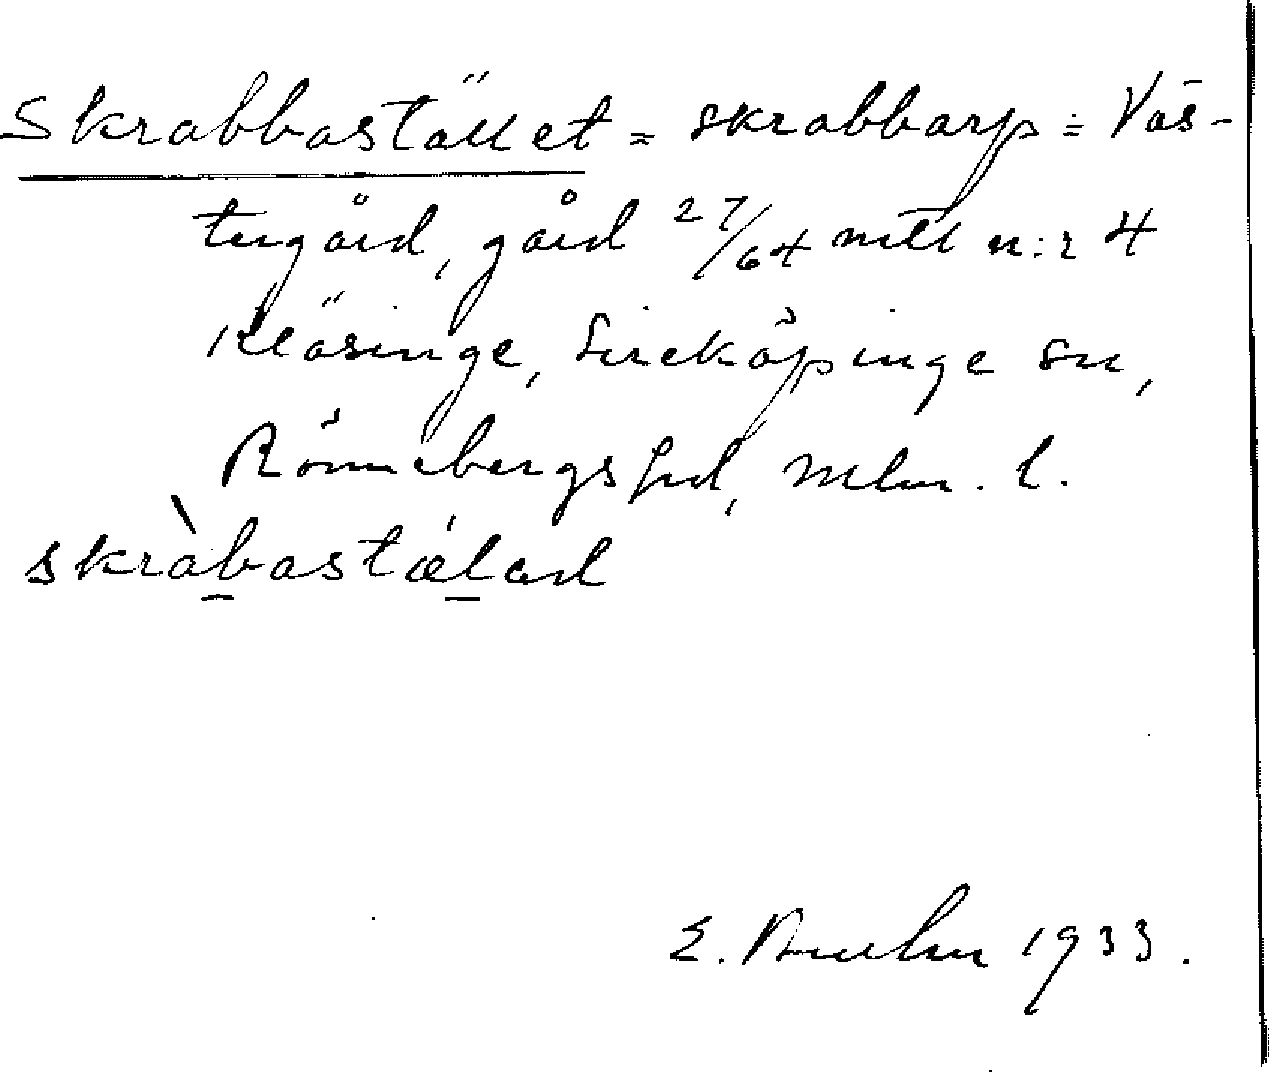 Skrabbastället = skrabbarp = Väs-
tergård, gård 27/64 mtl n:r 4
Kläsinge, Sireköpinge sn,
Rönnebergs hd, Mlm. l.
skràbastælad
E. 1933.